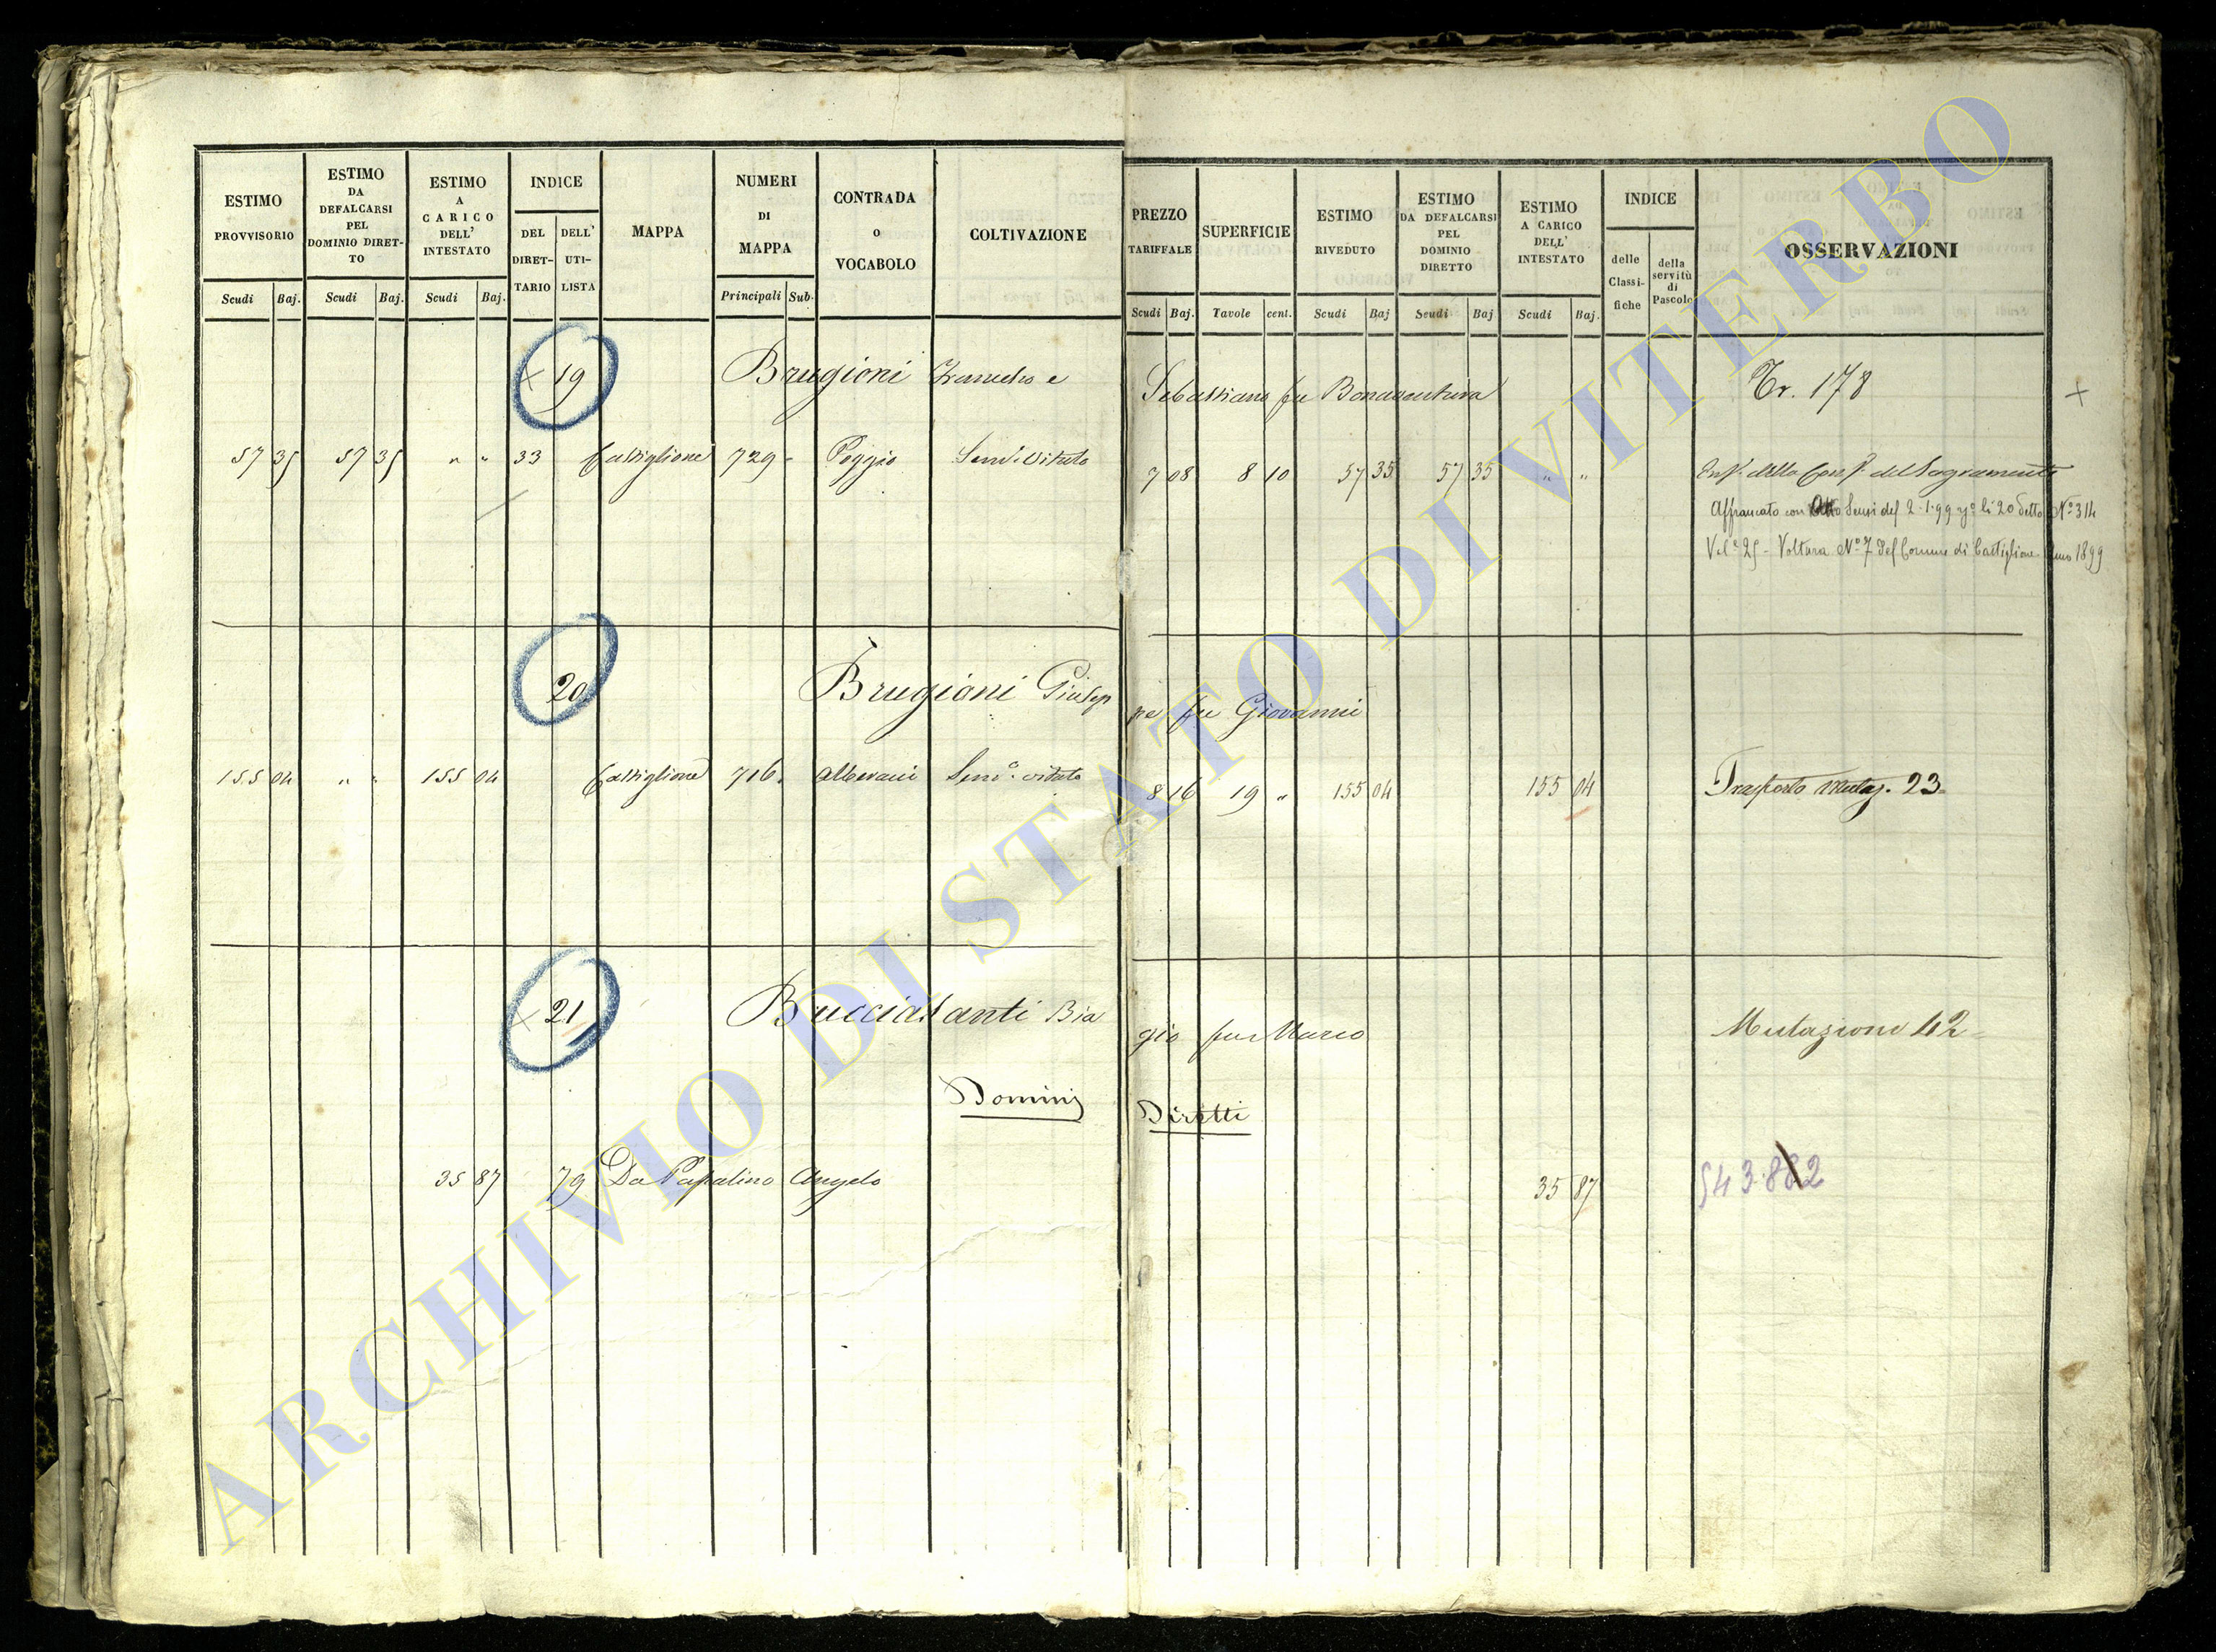 ESTIMO PROVVISORIO
Scudi Baj.
ESTIMO DA DEFALCARSI PEL DOMINIO DIRET-TO
Scudi Baj.
ESTIMO A CARICO DELL' INTESTATO
Scudi Baj.
INDICE
DEL DIRET-TARIO
DELL' UTI-LISTA
MAPPA
NUMERI DI MAPPA
Principali Sub.
CONTRADA o VOCABOLO
COLTIVAZIONE
PREZZO TARIFFALE
Scudi Baj.
SUPERFICIE
Tavole cent.
ESTIMO RIVEDUTO
Scudi Baj
ESTIMO DA DEFALCARSI PEL DOMINIO DIRETTO
Scudi Baj
ESTIMO A CARICO DELL' INTESTATO
Scudi Baj.
INDICE
delle Classi-fiche
della servitù di Pascolo
OSSERVAZIONI
x 19 Brugioni e Sebastiano fu Bonaventura Tr. 178 x
57 35 57 35 " " 33 Castiglione 729 - Poggio Semo. Vitato 7 08 8 10 57 35 57 35 " " della del Sagramento
Affrancato con Atto Sensi del 2.1.99 li 20 detto No. 314
Vol. 25 - Voltura No. 7 del Comune di Castiglione Anno 1899
20 Brugioni Giusep pe fu Giovanni
155 04 " " 155 04 Castiglione 716. Semo. vitato 8 16 19 " 155 04 155 04 Trasporto Mutaz. 23
x 21 Bucciasanti Bia gio fu Marco Mutazione 42
Dominj Diretti
35 87 79 Da Papalino Angelo 35 87 543.882
ARCHIVIO DI STATO DI VITERBO